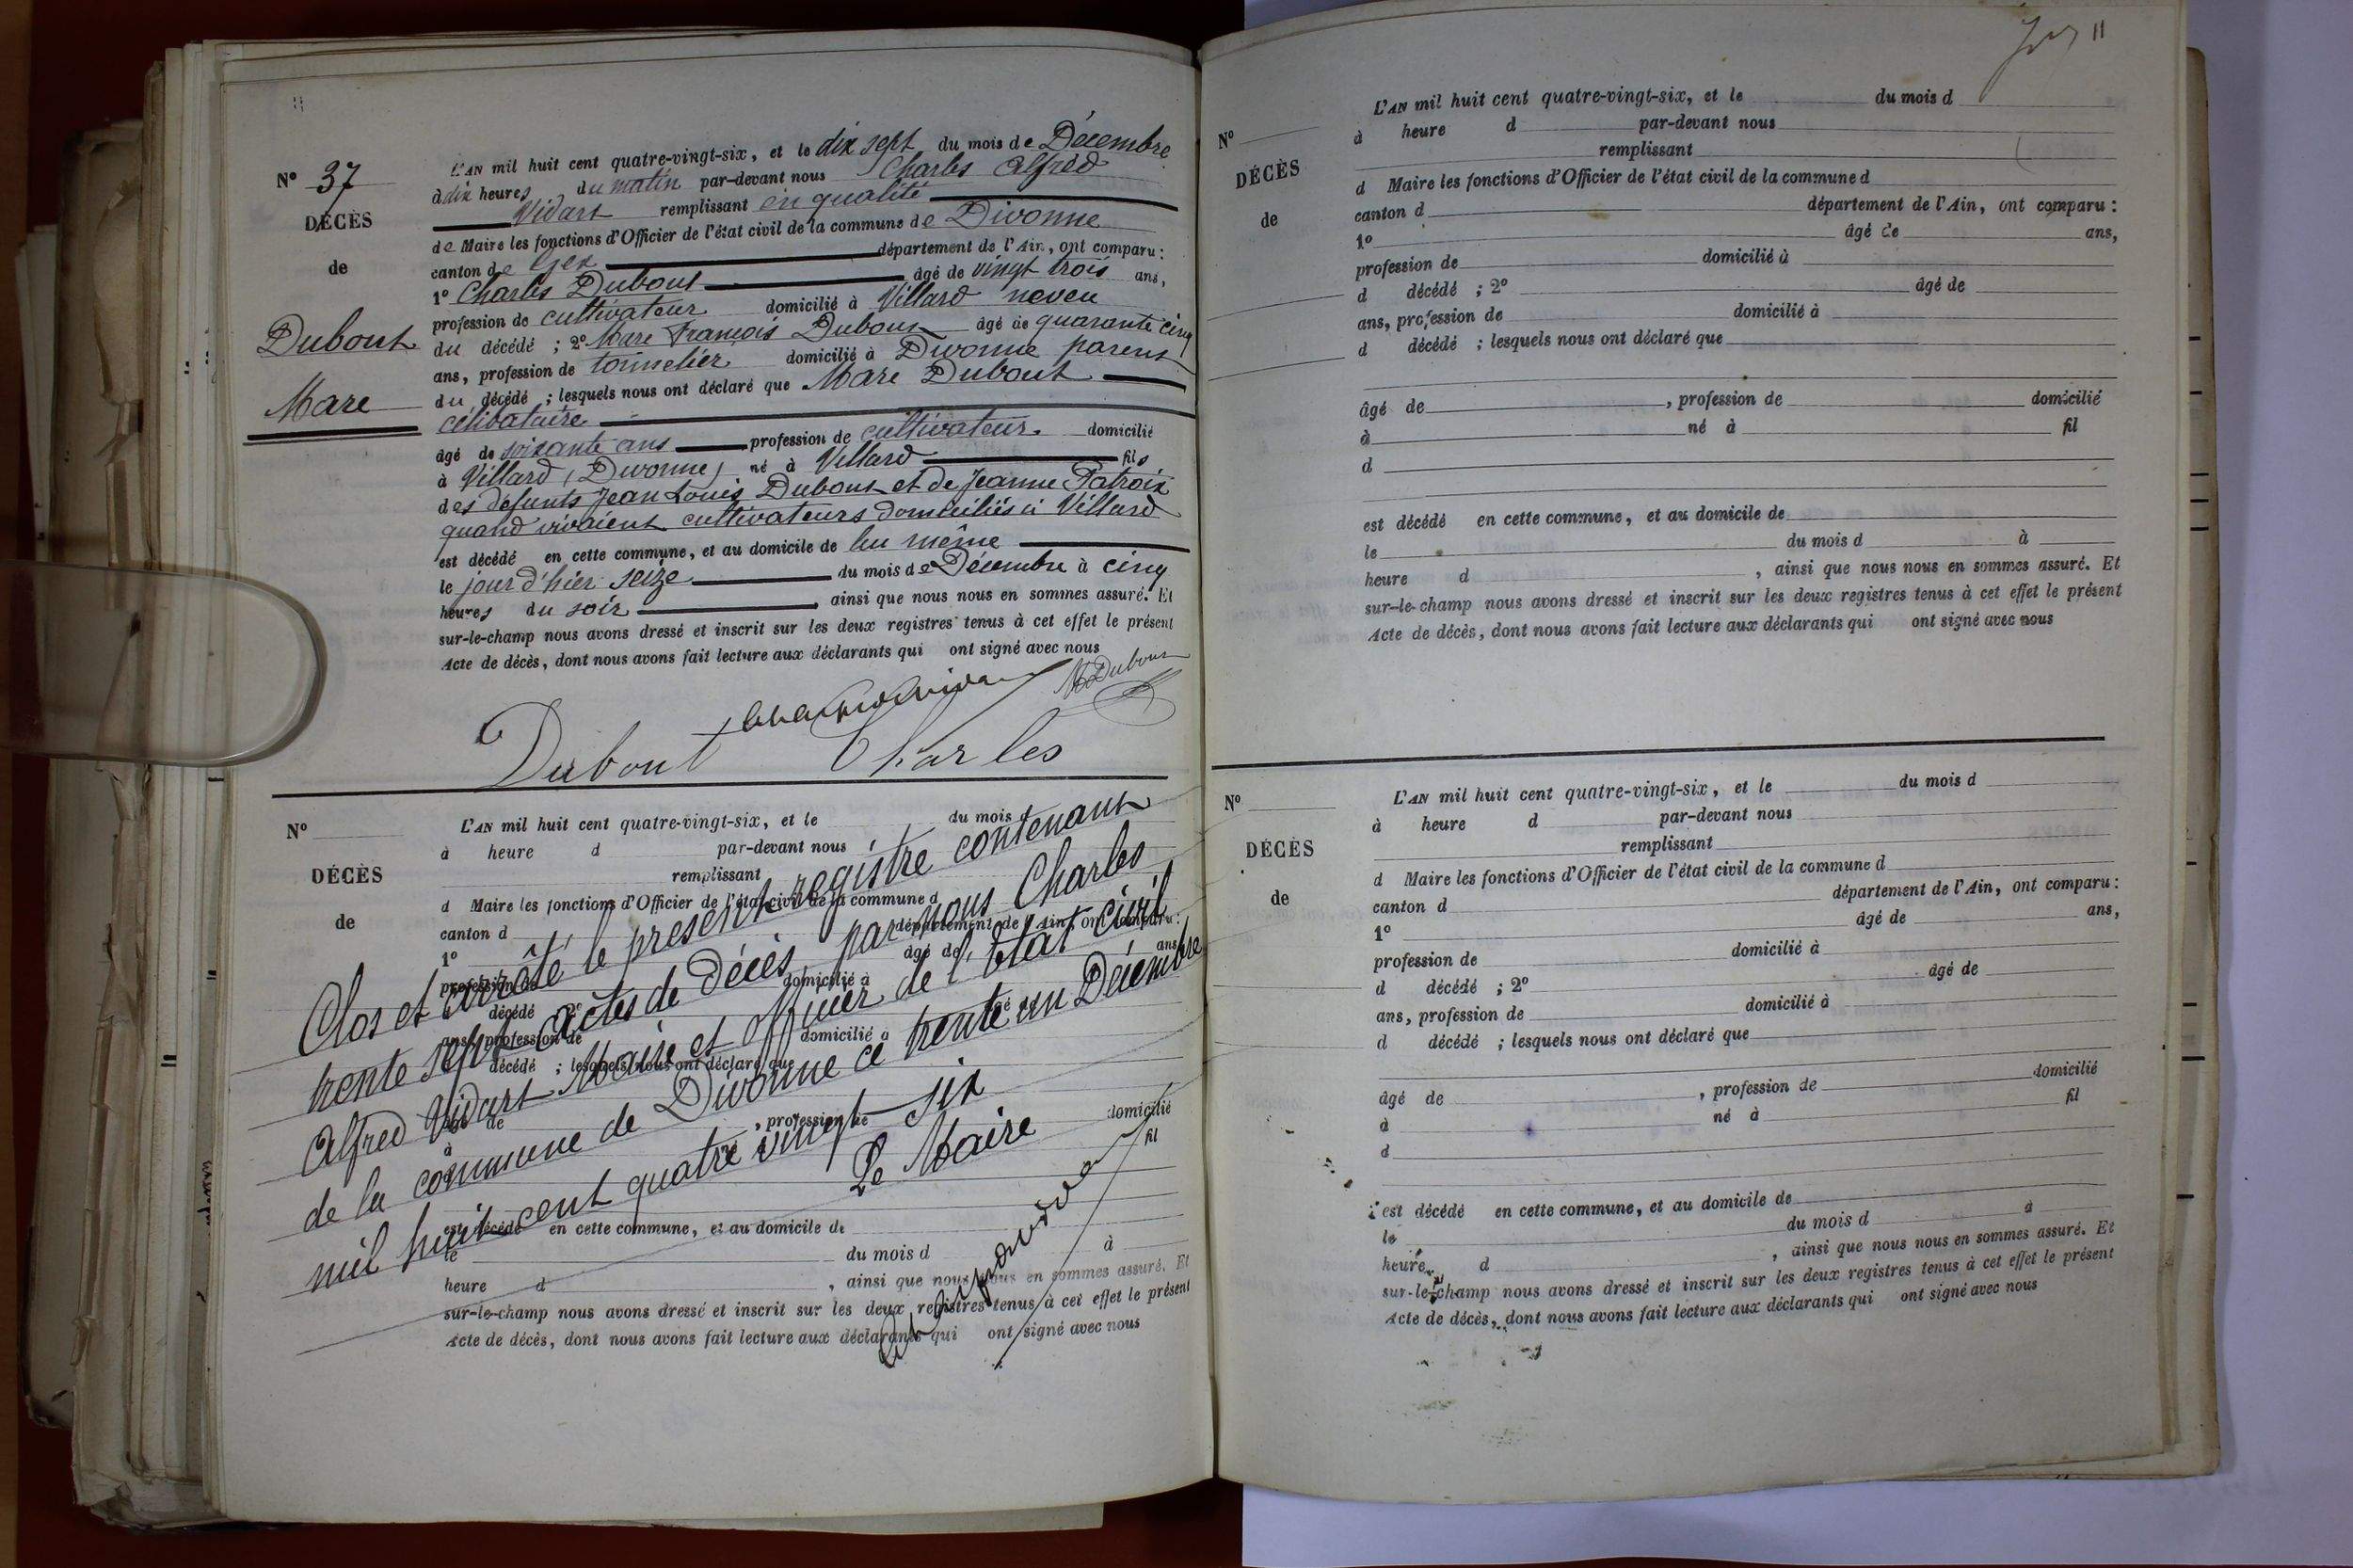 11
L'AN mil huit cent quatre-vingt-six, et le dix sept du mois de Décembre
N° 37
à dix heures du matin par-devant nous Charles Alfred
Vidart remplissant en qualité
DÉCÈS
de Maire les fonctions d'Officier de l'état civil de la commune de Divonne
canton de Gex département de l'Ain, ont comparu :
de
1° Charles Dubout âgé de vingt trois ans,
profession de cultivateur domicilié à Villard neveu
Dubout
du décédé ; 2° Marc François Dubout âgé de quarante cinq
ans, profession de tonnelier domicilié à Divonne parent
du décédé ; lesquels nous ont déclaré que Marc Dubout
Marc
célibataire
âgé de soixante ans profession de cultivateur domicilié
à Villard (Divonne) né à Villard fils
des défunts Jean Louis Dubout et de Jeanne Patroix
quand vivaient cultivateurs domiciliés à Villard
est décédé en cette commune, et au domicile de lui même
le jour d'hier seize du mois de Décembre à cinq
heures du soir , ainsi que nous nous en sommes assuré. Et
sur-le-champ nous avons dressé et inscrit sur les deux registres tenus à cet effet le présent
Acte de décès, dont nous avons fait lecture aux déclarants qui ont signé avec nous
M Dubout
Dubout Charles
N°
L'AN mil huit cent quatre-vingt-six, et le du mois
à heure d par-devant nous
remplissant
DÉCÈS
d Maire les fonctions d'Officier de l'état civil de la commune d
canton d département de l'Ain, ont comparu :
de
1° âgé de ans,
profession de domicilié à
d décédé 2° âgé de
ans, profession de domicilié à
décédé ; lesquels nous ont déclaré que
âgé de , profession de domicilié
à né fil
Clos et arrêté le présent registre contenant
trente sept actes de décès par nous Charles
Alfred Vidart Maire et officier de l'état civil
de la commune de Divonne ce trente un Décembre
mil huit cent quatre vingt six
Le Maire
est décédé en cette commune, et au domicile de
le du mois d à
heure d , ainsi que nous nous en sommes assuré. Et
sur-le-champ nous avons dressé et inscrit sur les deux registres tenus à cet effet le présent
Acte de décès, dont nous avons fait lecture aux déclarants qui ont signé avec nous
11
L'AN mil huit cent quatre-vingt-six, et le du mois d
N°
à heure d par-devant nous
remplissant
DÉCÈS
d Maire les fonctions d'Officier de l'état civil de la commune d
de
canton d département de l'Ain, ont comparu :
1° âgé de ans,
profession de domicilié à
d décédé ; 2° âgé de
ans, profession de domicilié à
d décédé ; lesquels nous ont déclaré que
âgé de , profession de domicilié
à né à fil
d
est décédé en cette commune, et au domicile de
le du mois d à
heure d , ainsi que nous nous en sommes assuré. Et
sur-le-champ nous avons dressé et inscrit sur les deux registres tenus à cet effet le présent
Acte de décès, dont nous avons fait lecture aux déclarants qui ont signé avec nous
N°
L'AN mil huit cent quatre-vingt-six, et le du mois d
à heure d par-devant nous
remplissant
DÉCÈS
d Maire les fonctions d'Officier de l'état civil de la commune d
de
canton d département de l'Ain, ont comparu :
1° âgé de ans,
profession de domicilié à
d décédé ; 2° âgé de
ans, profession de domicilié à
d décédé ; lesquels nous ont déclaré que
âgé de , profession de domicilié
à né à fil
d
est décédé en cette commune, et au domicile de
le du mois d à
heure d , ainsi que nous nous en sommes assuré. Et
sur-le-champ nous avons dressé et inscrit sur les deux registres tenus à cet effet le présent
Acte de décès, dont nous avons fait lecture aux déclarants qui ont signé avec nous